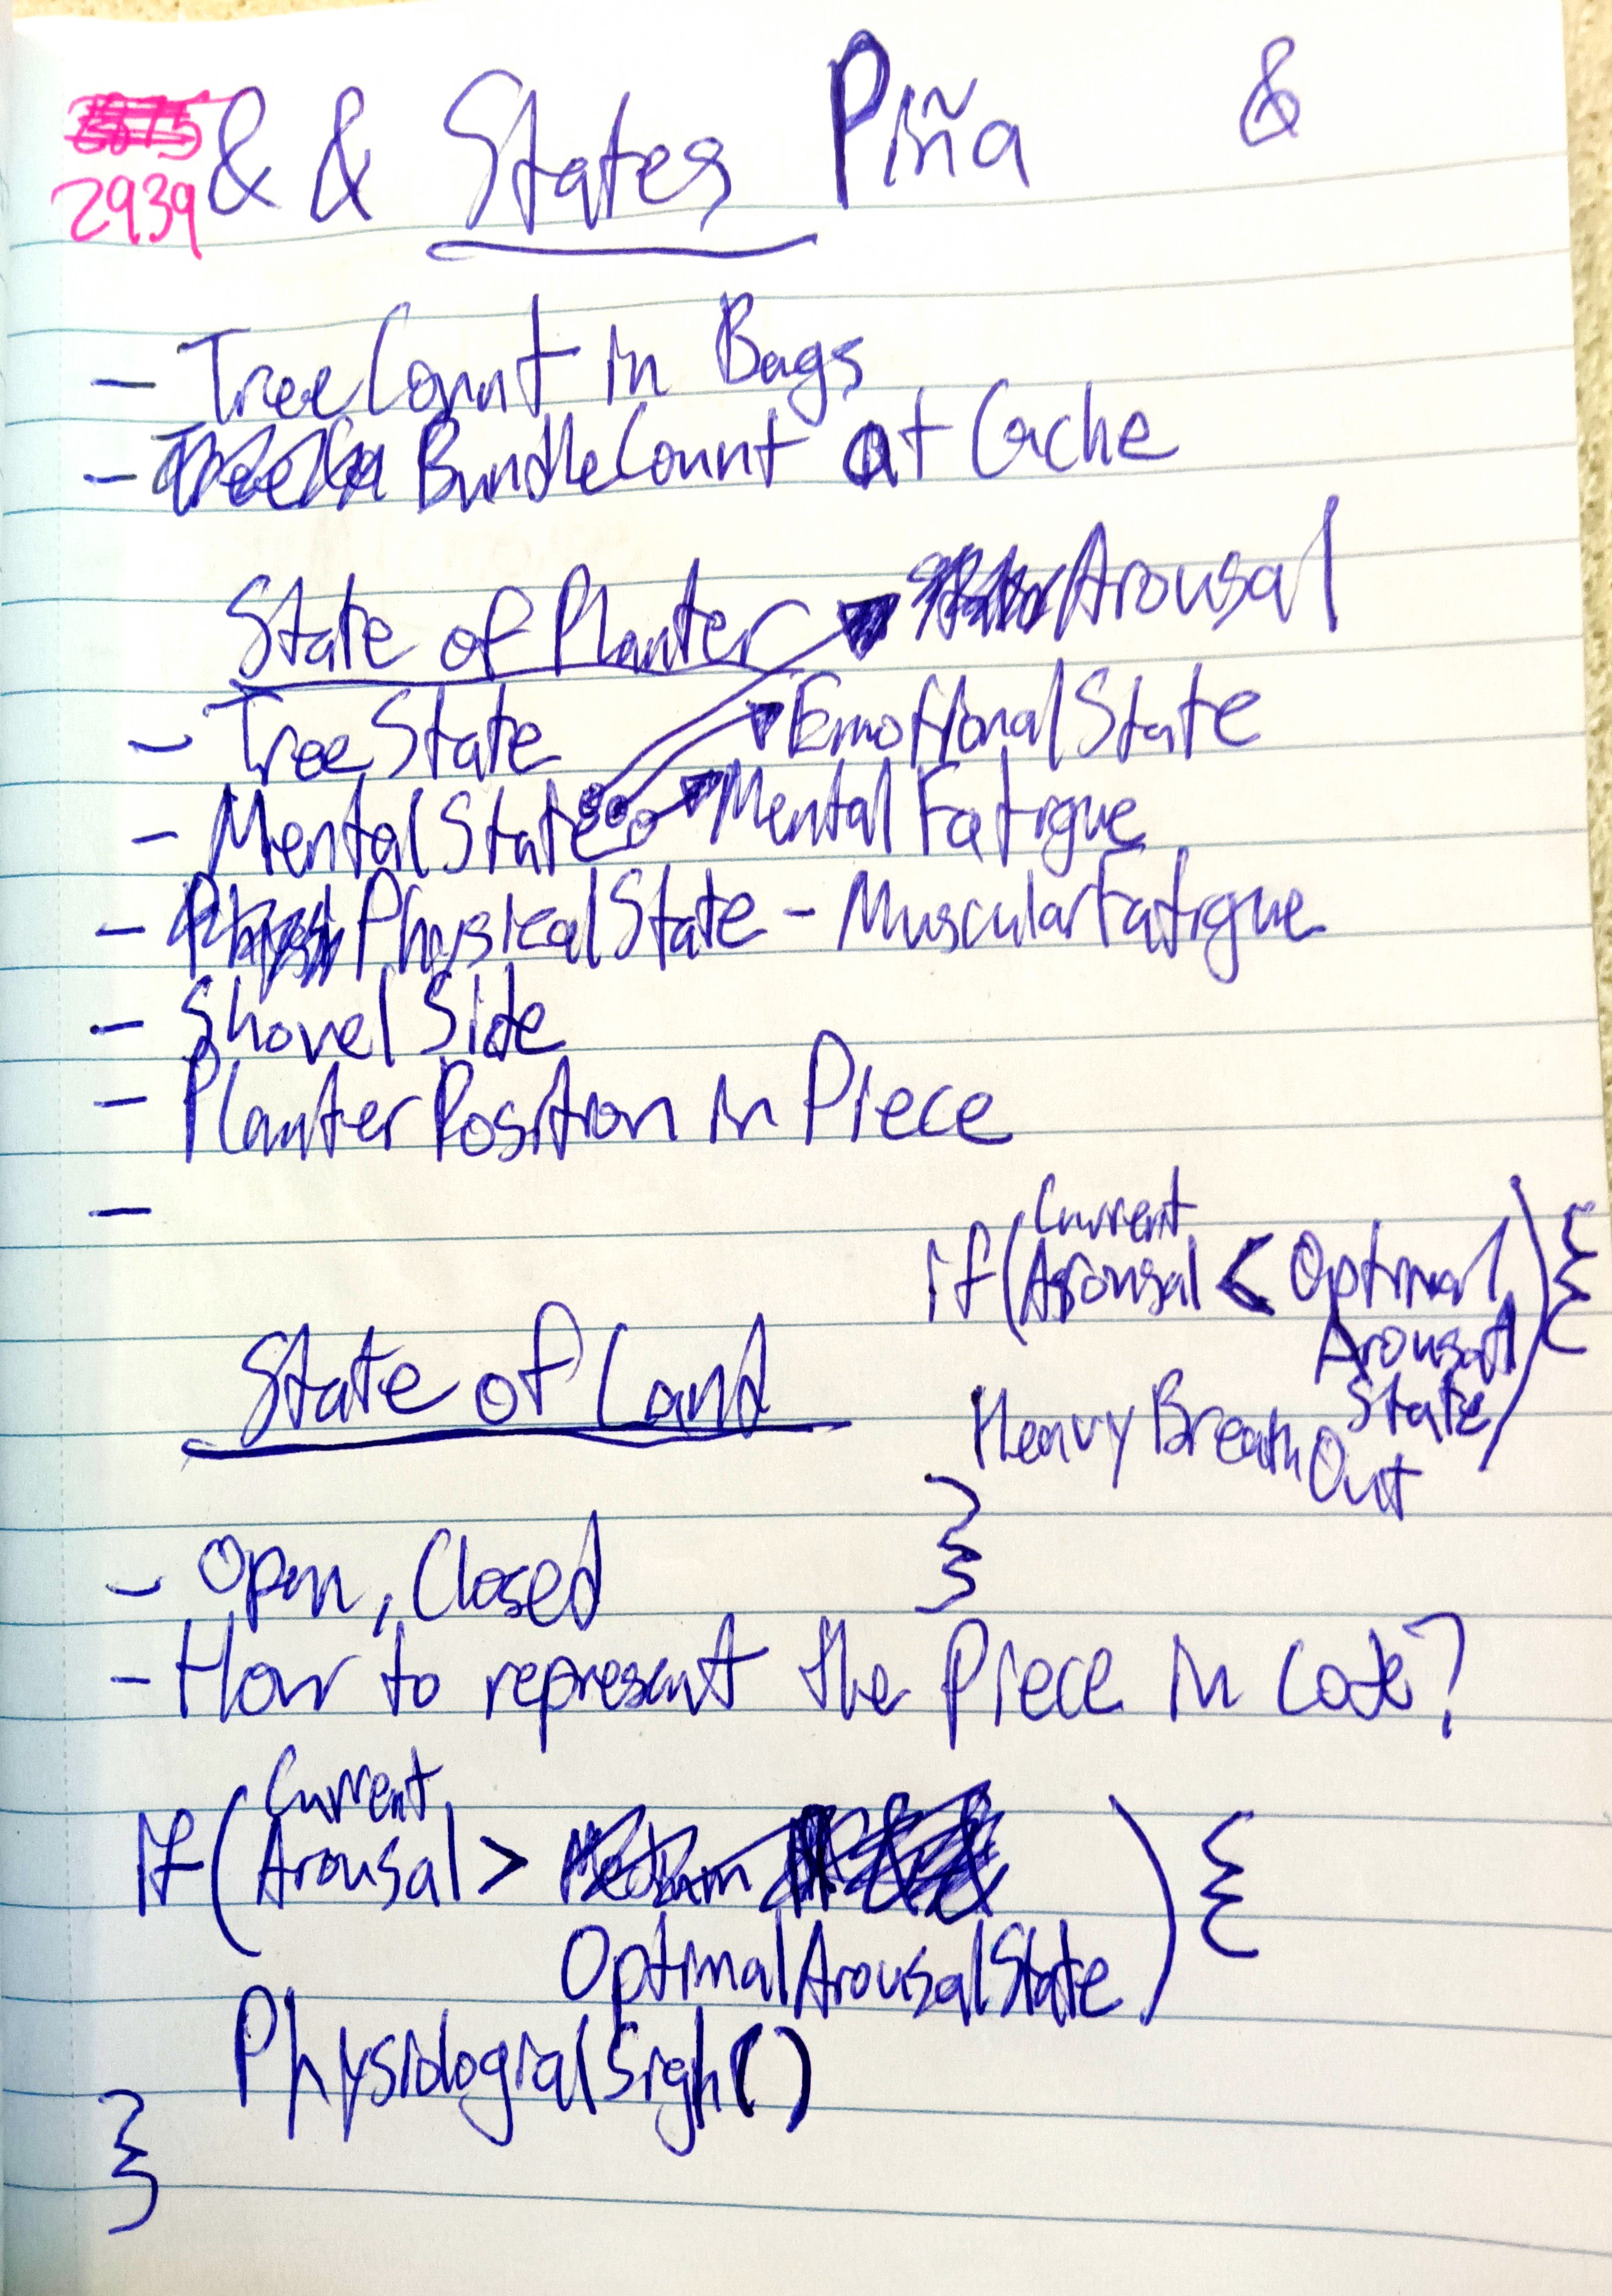 2939 & & States Piña &
- TreeCount in Bags
- BundleCount at Cache
State of Planter Arousal
- TreeState EmotionalState
- MentalState Mental Fatigue
- PhysicalState - MuscularFatigue
- Shovel Side
- Planter Position in Piece
-
if (Current Arousal < Optimal Arousal State) {
Heavy Breath Out
}
State of Land
- Open, Closed
- How to represent the Piece in Code?
If (Current Arousal >
OptimalArousalState) {
PhysiologialSigh()
}